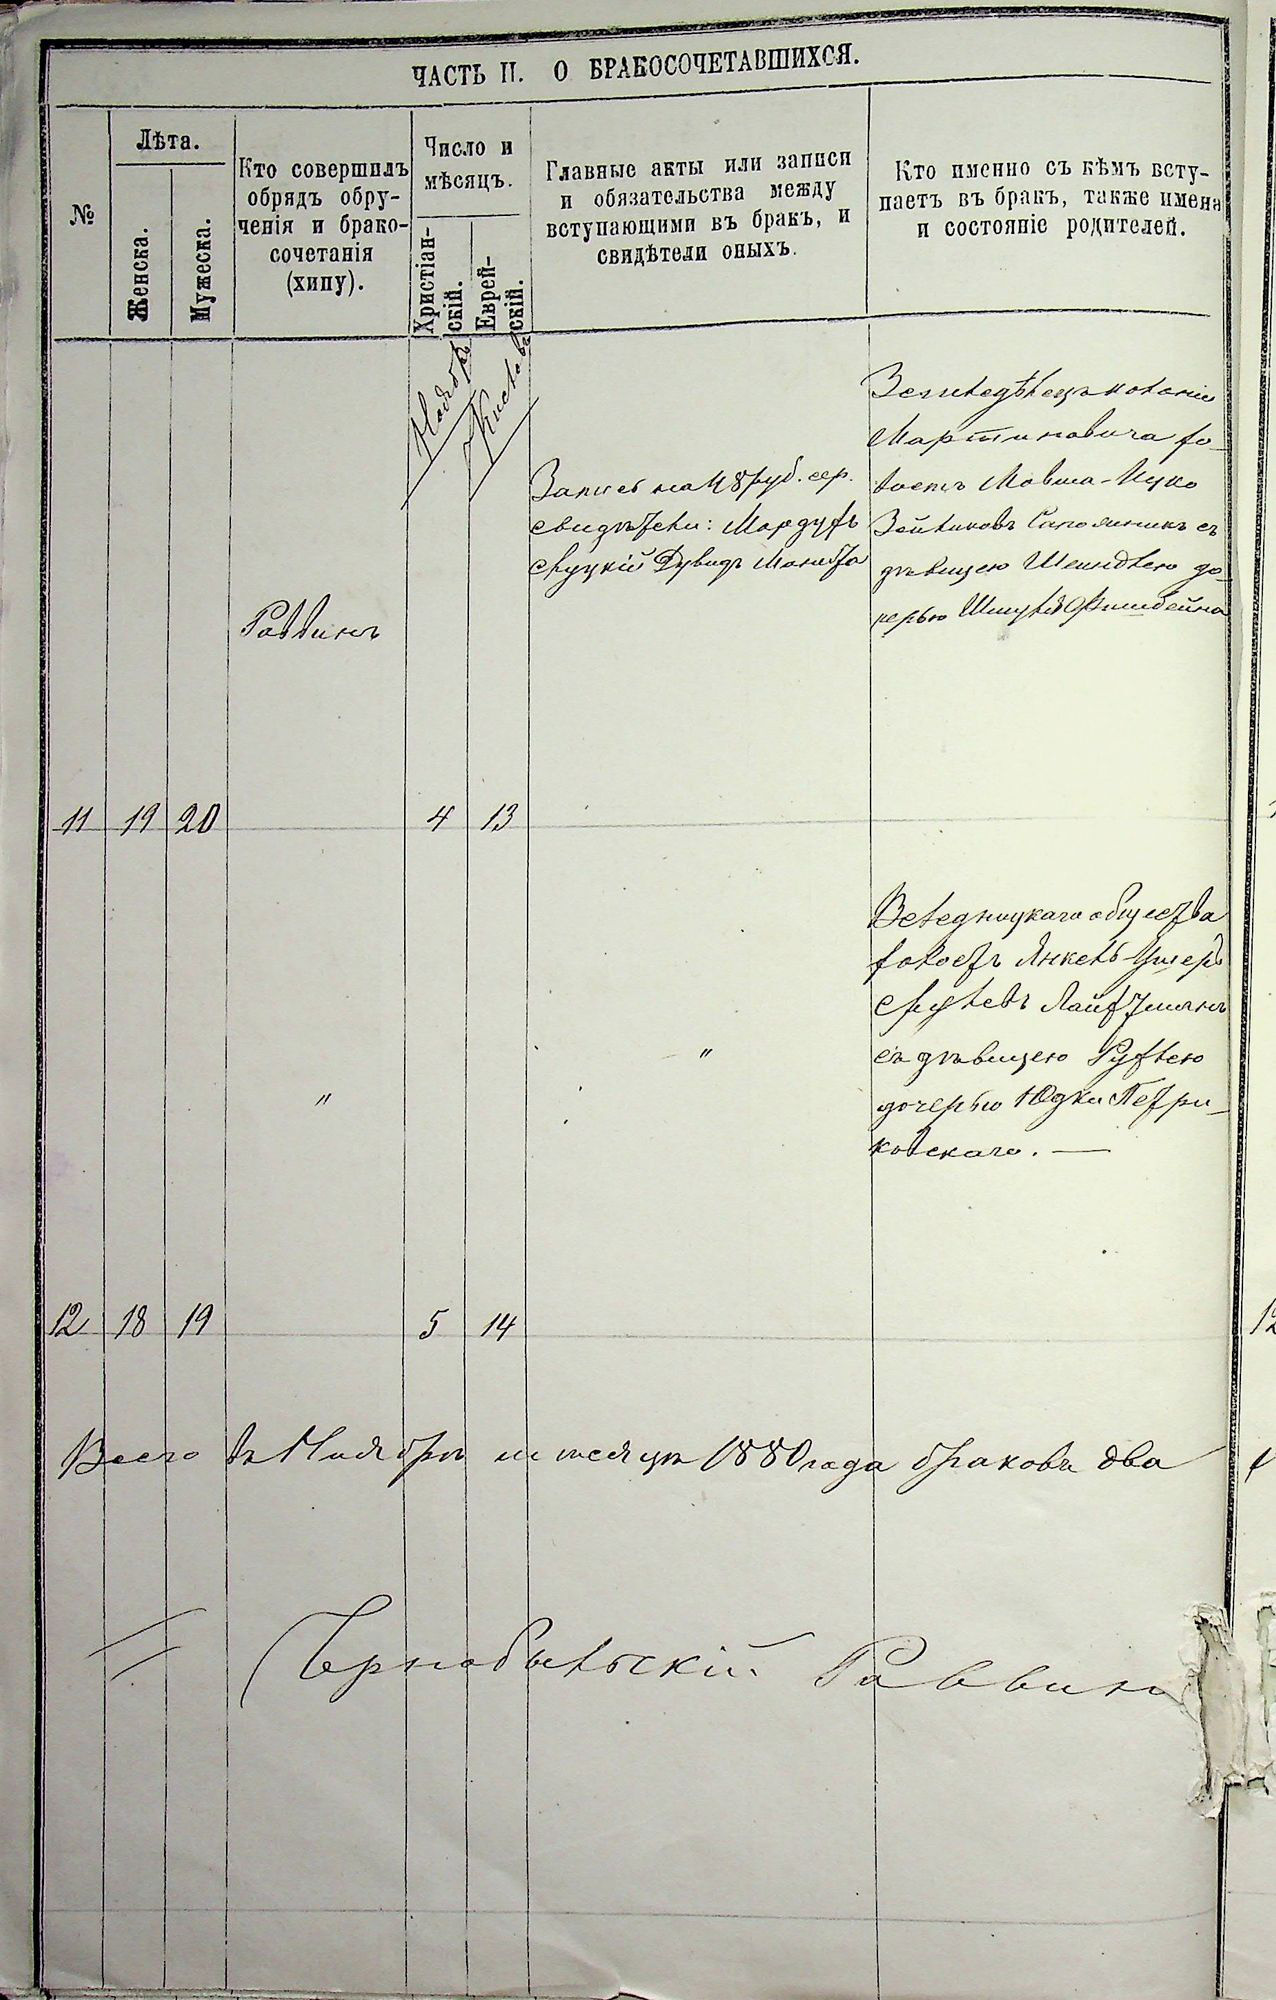 ЧАСТЬ II. О БРАКОСОЧЕТАВШИХСЯ.
№
Лѣта.
Женска.
Мужеска.
Кто совершилъ
обрядъ обру-
ченія и брако-
сочетанія
(хипу).
Число и
мѣсяцъ.
Христіан-
скій.
Еврей-
скій.
Главные акты или записи
и обязательства между
вступающими въ бракъ, и
свидѣтели оныхъ.
Кто именно съ кѣмъ всту-
паетъ въ бракъ, также имена
и состояніе родителей.
Ноябрь
Кислева
Раввинъ
Запись на 48 руб. сер.
свидѣтели: Мордухъ
Слуцкій Дувидъ
Земледѣлецъ колоніи
Мартиновича хо-
лостъ Мовша-Ицко
съ
дѣвицею Шейндлею до-
черью Шмуля Фишбейна
11 19 20 4 13
Веледницкаго общества
холостъ Янкель Ушеръ
Лайхтманъ
съ дѣвицею Рухлею
дочерью Юдки Петри-
ковскаго. —
"
"
12 18 19 5 14
Всего въ Ноябрѣ мѣсяцѣ 1880 года браковъ два
Чернобыльскій Раввинъ